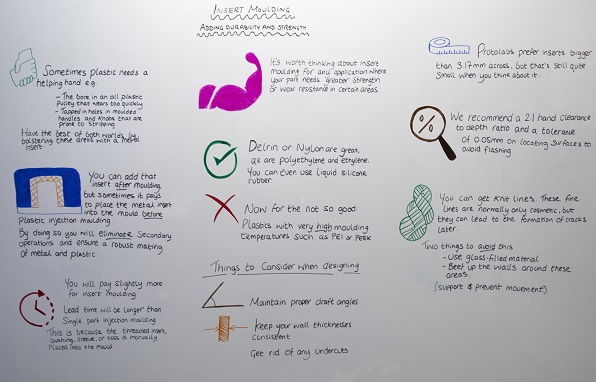 INSERT MOULDING
ADDING DURABILITY AND STRENGTH
Sometimes plastic needs a
helping hand e.g
- The bore in an all plastic
Pulley that wears too quickly
- Tapped in holes in moulded
handles and knobs that are
prone to stripping
Have the best of both worlds by
bolstering these areas with a metal
insert.
You can add that
insert after moulding,
but sometimes it pays
to place the metal insert
into the mould before
Plastic injection moulding
By doing so you will eliminate Secondary
operations and ensure a robust mating
of metal and plastic.
You will pay slightly more
for insert moulding
Lead time will be longer than
Single part injection moulding
This is because the threaded insert,
bushing, sleeve, or boss is manually
Placed into the mould
It's worth thinking about insert
moulding for any application where
your part needs greater strength
or wear resistance in certain areas.
Delrin or Nylon are great,
as are polyethylene and ethylene.
You can even use liquid silicone
rubber.
Now for the not so good:
Plastics with very high moulding
temperatures such as PEI or PEEK
Things to Consider when designing
Maintain proper draft angles
keep your wall thicknesses
consistent
Get rid of any undercuts
Protolabs prefer inserts bigger
than 3.17mm across, but that's still quite
Small when you think about it.
We recommend a 2:1 hand clearance
to depth ratio and a tolerance
of 0.05mm on locating surfaces to
avoid flashing
You can get knit lines. These fine
lines are normally only cosmetic, but
they can lead to the formation of cracks
later.
Two things to avoid this
- Use glass-filled material
- Beef up the walls around these
areas.
(support & prevent movement)